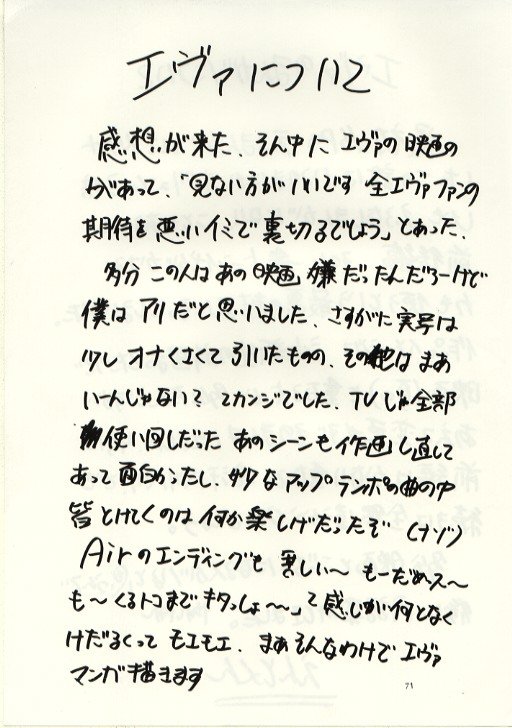 エヴァについて
感想が来た、そん中に エヴァの映画の
があって、「見ない方がいいです 全エヴァファンの
期待を悪いイミで裏切るでしょう」とあった、
多分 この人はあの映画 嫌だったんだろーけど
僕は アリだと思いました、さすがに実写は
少し オナくさくて 引いたものの、その他は まあ
いーんじゃない? てカンジでした、TVじゃ全部
使い回しだった あのシーンも作画し直して
あって面白かったし、妙なアップテンポの曲の中
皆とけてくのは 何か楽しげだったぞ (ナゾ)
Airのエンディングも 苦しい〜 もーだめス〜
も〜くるトコまで キタっしょ〜〜」て感じが何となく
けだるくって モエモエ、まあそんなわけで エヴァ
マンガ描きます
71